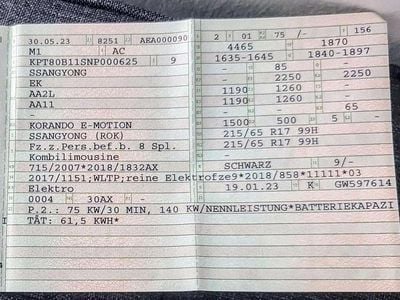 30.05.23 8251 AEA000090
M1 AC
KPT80B11SNP000625 9
SSANGYONG
EK
AA2L
AA11
-
KORANDO E-MOTION
SSANGYONG (ROK)
Fz.z.Pers.bef.b. 8 Spl.
Kombilimousine
715/2007*2018/1832AX
2017/1151;WLTP;reine Elektrofze9*2018/858*11111*03
Elektro
0004 30AX -
P.2.: 75 KW/30 MIN, 140 KW/NENNLEISTUNG*BATTERIEKAPAZI
TÄT: 61,5 KWH*
2 01 75 /- 156
4465 1870
1635-1645 1840-1897
- 85 -
- 2250 2250
1190 1260 -
1190 1260 -
- - 65
1500 500 5 -
215/65 R17 99H
215/65 R17 99H
-
SCHWARZ 9/-
19.01.23 K GW597614